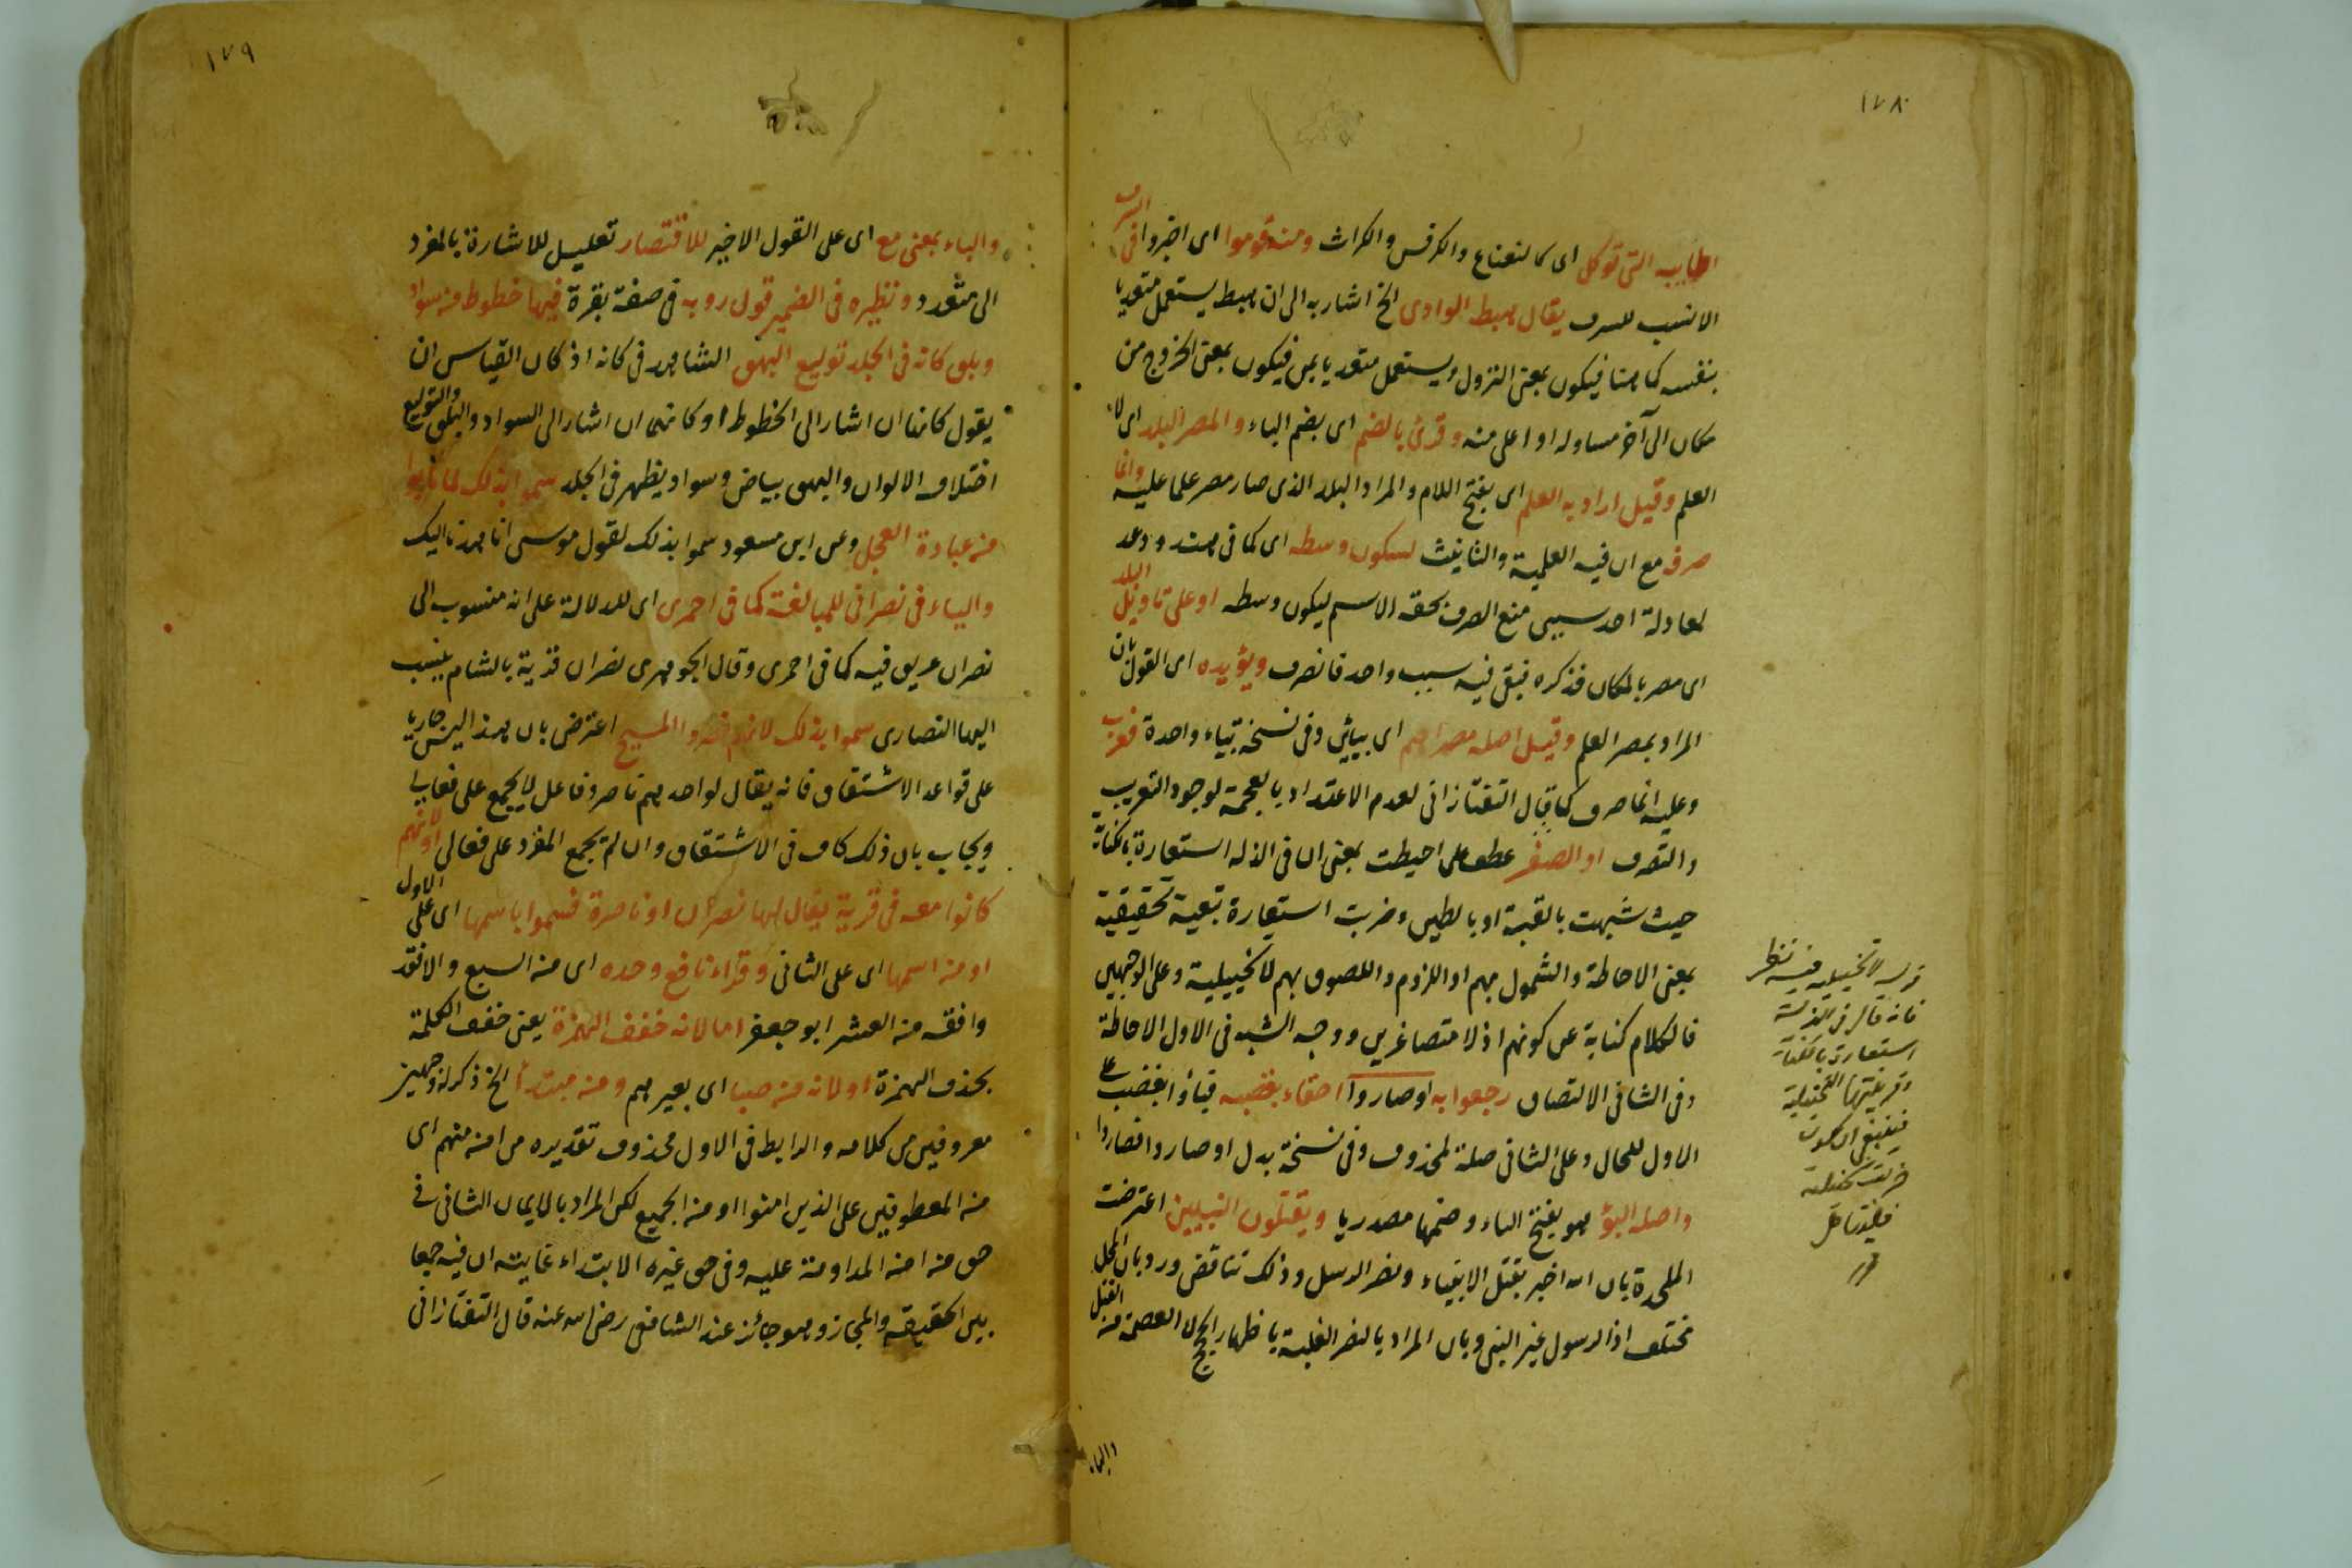 ١٧٨
اطايبه التى توكل اى كالنعناع والكرفس والكراث ومنه قوموا اى اخبزوا
الانسب للسرف يقال هبط الوادى الخ اشار به الى ان هبط يستعمل متعديا
بنفسه كما هنا فيكون بمعنى النزول ويستعمل متعديا بمن فيكون بمعنى الخروج من
مكان الى آخر مساو له او اعلى منه وقرئ بالضم اى بضم الباء والمصر البلد اى لا
العلم وقيل اراد به العلم اى بفتح اللام والمراد البلد الذى صار مصر علما عليه وانما
صرف مع ان فيه العلمية والتانيث لسكون وسطه اى كما فى هند ودعد
لمعادلة احد سببى منع الصرف بخفة الاسم لسكون وسطه او على تاويل البلد
اى مصر بالمكان فذكره فبقى فيه سبب واحد فانصرف ويؤيده اى القول بان
المراد بمصر العلم وقيل اصله مصرايم اى بيائين وفى نسخة بياء واحدة فعرب
وعليه انما صرف كما قال التفتازانى لعدم الاعتداد بالعجمة لوجود التعريب
والتصرف او الصغر عطف على احيطت بمعنى ان فى الذلة استعارة بالكناية
حيث شبهت بالقبة او بالطين وضربت استعارة تبعية تحقيقية
بمعنى الاحاطة والشمول بهم او اللزوم واللصوق بهم لا تخييلية وعلى الوجهين
فالكلام كناية عن كونهم اذلاء متصاغرين ووجه الشبه فى الاول الاحاطة
وفى الثانى الالتصاق رجعوا به او صاروا احقاء بغضبه فباؤا بغضب على
الاول للحال وعلى الثانى صلة لمحذوف وفى نسخة بدل او صاروا فصاروا
واصله البؤ هو بفتح الباء وضمها مصدريا ويقتلون النبيين اعترضت
الملحدة بان الله اخبر بقتل الانبياء ونصر الرسل وذلك تناقض ورد بان المحل
مختلف اذ الرسول غير النبى وبان المراد بالنصر الغلبة باظهار الحجج لا العصمة من القتل
والباء
قوله لا تخييلية فيه نظر
فانه قال فى الذلة
استعارة بالكناية
وقرينتها التخييلية
فينبغى ان تكون
ضربت تخييلية
فليتامل
١٧٩
والباء بمعنى مع اى على القول الاخير للاقتصار تعليل للاشارة بالمفرد
الى متعدد ونظيره فى الضمير قول روبه فى صفة بقرة فيها خطوط من سواد
وبلق كانه فى الجلد توليع البهق الشاهد فى كانه اذ كان القياس ان
يقول كانها ان اشار الى الخطوط او كانهما ان اشار الى السواد والبلق والتوليع
اختلاف الالوان والبهق بياض وسواد يظهر فى الجلد سموا بذلك لما تابوا
من عبادة العجل وعن ابن مسعود سموا بذلك لقول موسى انا هدنا اليك
والياء فى نصرانى للمبالغة كما فى احمرى اى للدلالة على انه منسوب الى
نصران عريق فيه كما فى احمرى وقال الجوهرى نصران قرية بالشام ينسب
اليها النصارى سموا بذلك لانهم نصروا المسيح اعترض بان هذا ليس جاريا
على قواعد الاشتقاق فانه يقال لواحدهم ناصر وفاعل لا يجمع على فعالى
ويجاب بان ذلك كاف فى الاشتقاق وان لم يجمع المفرد على فعالى او لانهم
كانوا معه فى قرية يقال لها نصران او ناصرة فسموا باسمها اى على الاول
او من اسمها اى على الثانى وقراء نافع وحده اى من السبع والا فقد
وافقه من العشر ابو جعفر اما لانه خفف الهمزة يعنى خفف الكلمة
بحذف الهمزة او لانه من صبا اى بغير همز ومن مبتدأ الخ ذكر له وجهين
معروفين من كلامه والرابط فى الاول محذوف تقديره من امن منهم اى
من المعطوفين على الذين امنوا او من الجميع لكن المراد بالايمان الثانى فى
حق من امن المداومة عليه وفى حق غيره الابتداء غايته ان فيه جمعا
بين الحقيقة والمجاز وهو جائز عند الشافعى رضى الله عنه قال التفتازانى